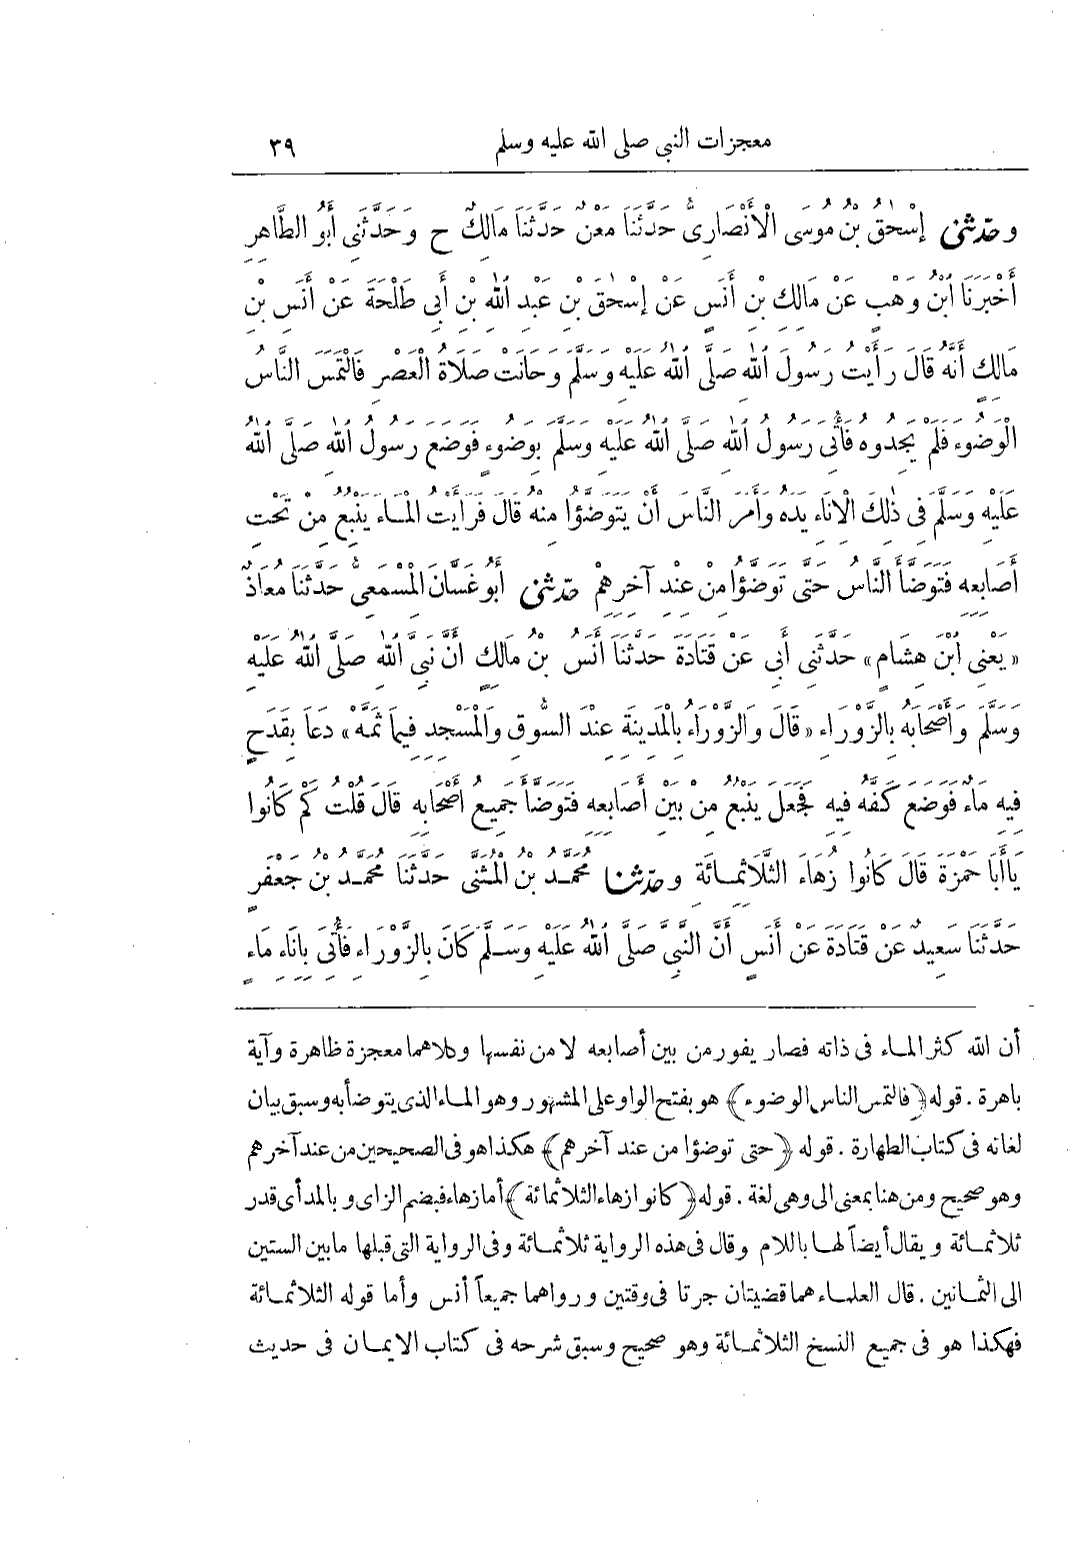 معجزات النبى صلى الله عليه وسلم ٣٩
وحَدَّثَنِى إِسْحٰقُ بْنُ مُوسَى الْأَنْصَارِىُّ حَدَّثَنَا مَعْنٌ حَدَّثَنَا مَالِكٌ ح وَحَدَّثَنِى أَبُو الطَّاهِرِ
أَخْبَرَنَا ابْنُ وَهْبٍ عَنْ مَالِكِ بْنِ أَنَسٍ عَنْ إِسْحٰقَ بْنِ عَبْدِ اللّٰهِ بْنِ أَبِى طَلْحَةَ عَنْ أَنَسِ بْنِ
مَالِكٍ أَنَّهُ قَالَ رَأَيْتُ رَسُولَ اللّٰهِ صَلَّى اللّٰهُ عَلَيْهِ وَسَلَّمَ وَحَانَتْ صَلَاةُ الْعَصْرِ فَالْتَمَسَ النَّاسُ
الْوَضُوءَ فَلَمْ يَجِدُوهُ فَأُتِىَ رَسُولُ اللّٰهِ صَلَّى اللّٰهُ عَلَيْهِ وَسَلَّمَ بِوَضُوءٍ فَوَضَعَ رَسُولُ اللّٰهِ صَلَّى اللّٰهُ
عَلَيْهِ وَسَلَّمَ فِى ذٰلِكَ الْإِنَاءِ يَدَهُ وَأَمَرَ النَّاسَ أَنْ يَتَوَضَّؤُا مِنْهُ قَالَ فَرَأَيْتُ الْمَاءَ يَنْبُعُ مِنْ تَحْتِ
أَصَابِعِهِ فَتَوَضَّأَ النَّاسُ حَتَّى تَوَضَّؤُا مِنْ عِنْدِ آخِرِهِمْ حَدَّثَنِى أَبُو غَسَّانَ الْمِسْمَعِىُّ حَدَّثَنَا مُعَاذٌ
«يَعْنِى ابْنَ هِشَامٍ» حَدَّثَنِى أَبِى عَنْ قَتَادَةَ حَدَّثَنَا أَنَسُ بْنُ مَالِكٍ أَنَّ نَبِىَّ اللّٰهِ صَلَّى اللّٰهُ عَلَيْهِ
وَسَلَّمَ وَأَصْحَابَهُ بِالزَّوْرَاءِ «قَالَ وَالزَّوْرَاءُ بِالْمَدِينَةِ عِنْدَ السُّوقِ وَالْمَسْجِدِ فِيمَا ثَمَّهْ» دَعَا بِقَدَحٍ
فِيهِ مَاءٌ فَوَضَعَ كَفَّهُ فِيهِ فَجَعَلَ يَنْبُعُ مِنْ بَيْنِ أَصَابِعِهِ فَتَوَضَّأَ جَمِيعُ أَصْحَابِهِ قَالَ قُلْتُ كَمْ كَانُوا
يَا أَبَا حَمْزَةَ قَالَ كَانُوا زُهَاءَ الثَّلَاثِمِائَةِ وحَدَّثَنَا مُحَمَّدُ بْنُ الْمُثَنَّى حَدَّثَنَا مُحَمَّدُ بْنُ جَعْفَرٍ
حَدَّثَنَا سَعِيدٌ عَنْ قَتَادَةَ عَنْ أَنَسٍ أَنَّ النَّبِىَّ صَلَّى اللّٰهُ عَلَيْهِ وَسَلَّمَ كَانَ بِالزَّوْرَاءِ فَأُتِىَ بِإِنَاءِ مَاءٍ
أن الله كثر الماء فى ذاته فصار يفور من بين أصابعه لا من نفسها وكلاهما معجزة ظاهرة وآية
باهرة . قوله ﴿فالتمس الناس الوضوء﴾ هو بفتح الواو على المشهور وهو الماء الذى يتوضأ به وسبق بيان
لغاته فى كتاب الطهارة . قوله ﴿حتى توضؤا من عند آخرهم﴾ هكذا هو فى الصحيحين من عند آخرهم
وهو صحيح ومن هنا بمعنى الى وهى لغة . قوله ﴿كانوا زهاء الثلاثمائة﴾ أما زهاء فبضم الزاى و بالمد أى قدر
ثلاثمائة و يقال أيضاً لها باللام وقال فى هذه الرواية ثلاثمائة وفى الرواية التى قبلها ما بين الستين
الى الثمانين . قال العلماء هما قضيتان جرتا فى وقتين و رواهما جميعاً أنس وأما قوله الثلاثمائة
فهكذا هو فى جميع النسخ الثلاثمائة وهو صحيح وسبق شرحه فى كتاب الايمان فى حديث